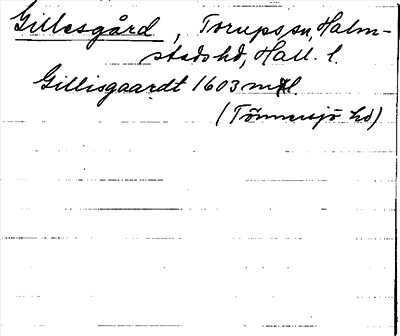 Gillesgård, Torups sn, Halm-
stads hd, Hall. l.
Gillisgaardt 1603 mtl.
(Tönnersjö hd)